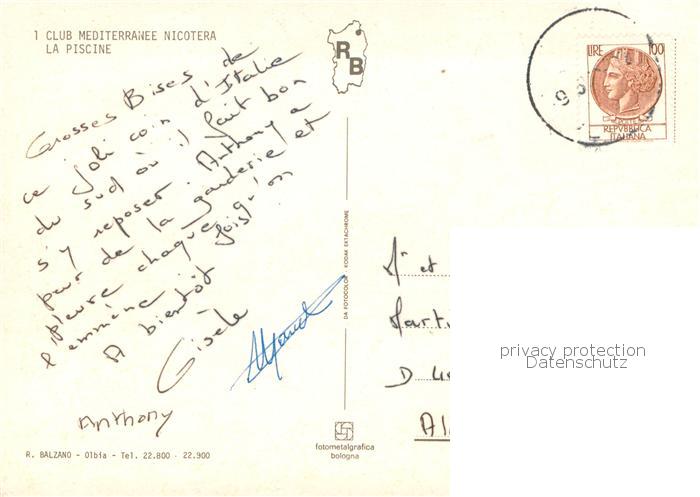 1 CLUB MEDITERRANEE NICOTERA
LA PISCINE
Grosses Bises de
ce joli coin d'Italie
du sud où il fait bon
s'y reposer. Anthony a
peur de la garderie et
pleure chaque fois qu'on
l'emmène.
A bientôt
Gisèle
Anthony
R. BALZANO - Olbia - Tel. 22.800 - 22.900
R
B
DA FOTOCOLOR KODAK EKTACHROME
fotometalgrafica
bologna
LIRE 100
REPVBBLICA
ITALIANA
Mr et
D
Al
privacy protection
Datenschutz